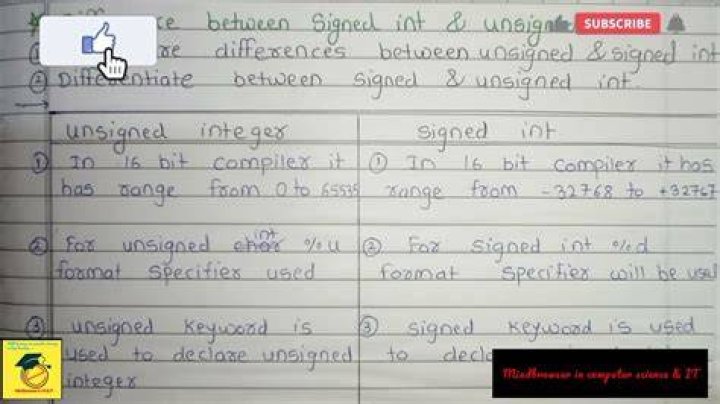 between Signed int & unsign
SUBSCRIBE
① re differences between unsigned & signed int
② Differentiate between signed & unsigned int.
unsigned integer
① In 16 bit compiler it
has range from 0 to 65535
② For unsigned char int %u
format specifier used
③ unsigned keyword is
used to declare unsigned
integer
signed int
① In 16 bit compiler it has
range from -32768 to +32767
② For signed int %d
format specifier will be used
③ signed keyword is used
to decla
Mindbrowser in computer science & IT